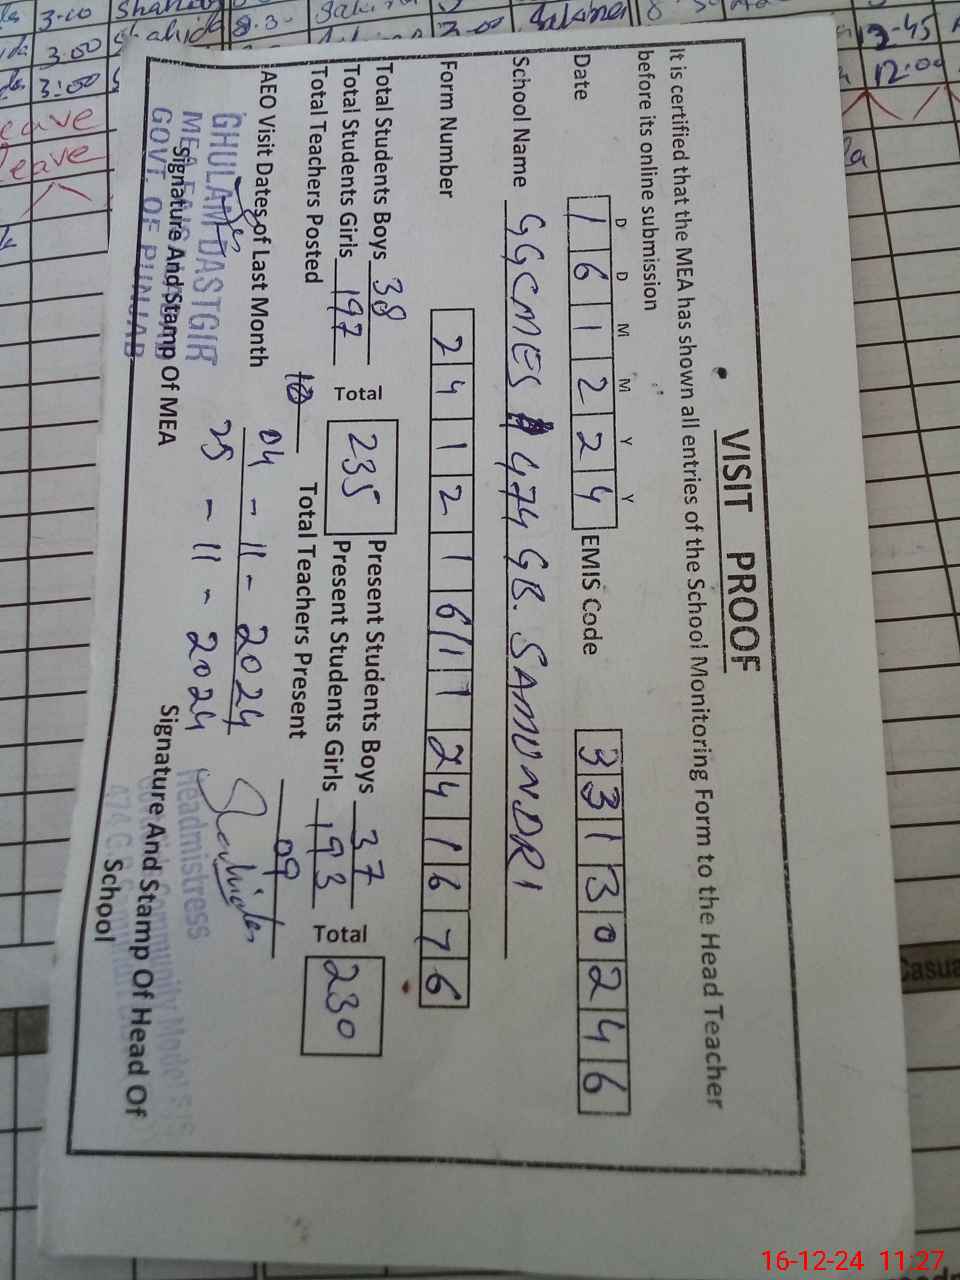 VISIT PROOF
It is certified that the MEA has shown all entries of the School Monitoring Form to the Head Teacher
before its online submission
D D M M Y Y
Date 1 6 1 2 2 4 EMIS Code 3 3 1 3 0 2 4 6
School Name GGCMES 474 GB. SAMUNDRI
Form Number 2 4 1 2 1 6 1 1 2 4 1 6 7 6
Total Students Boys 38 Present Students Boys 37
Total Students Girls 197 Total 235 Present Students Girls 193 Total 230
Total Teachers Posted 10 Total Teachers Present 09
AEO Visit Dates of Last Month 04 - 11 - 2024
25 - 11 - 2024
GHULAM DASTGIR
GOVT. OF PUNJAB
Signature And Stamp Of MEA
Headmistress
Community Model
Signature And Stamp Of Head Of
School
3-00
3:00
eave
eave
12-45
12:00
Casua
16-12-24 11:27